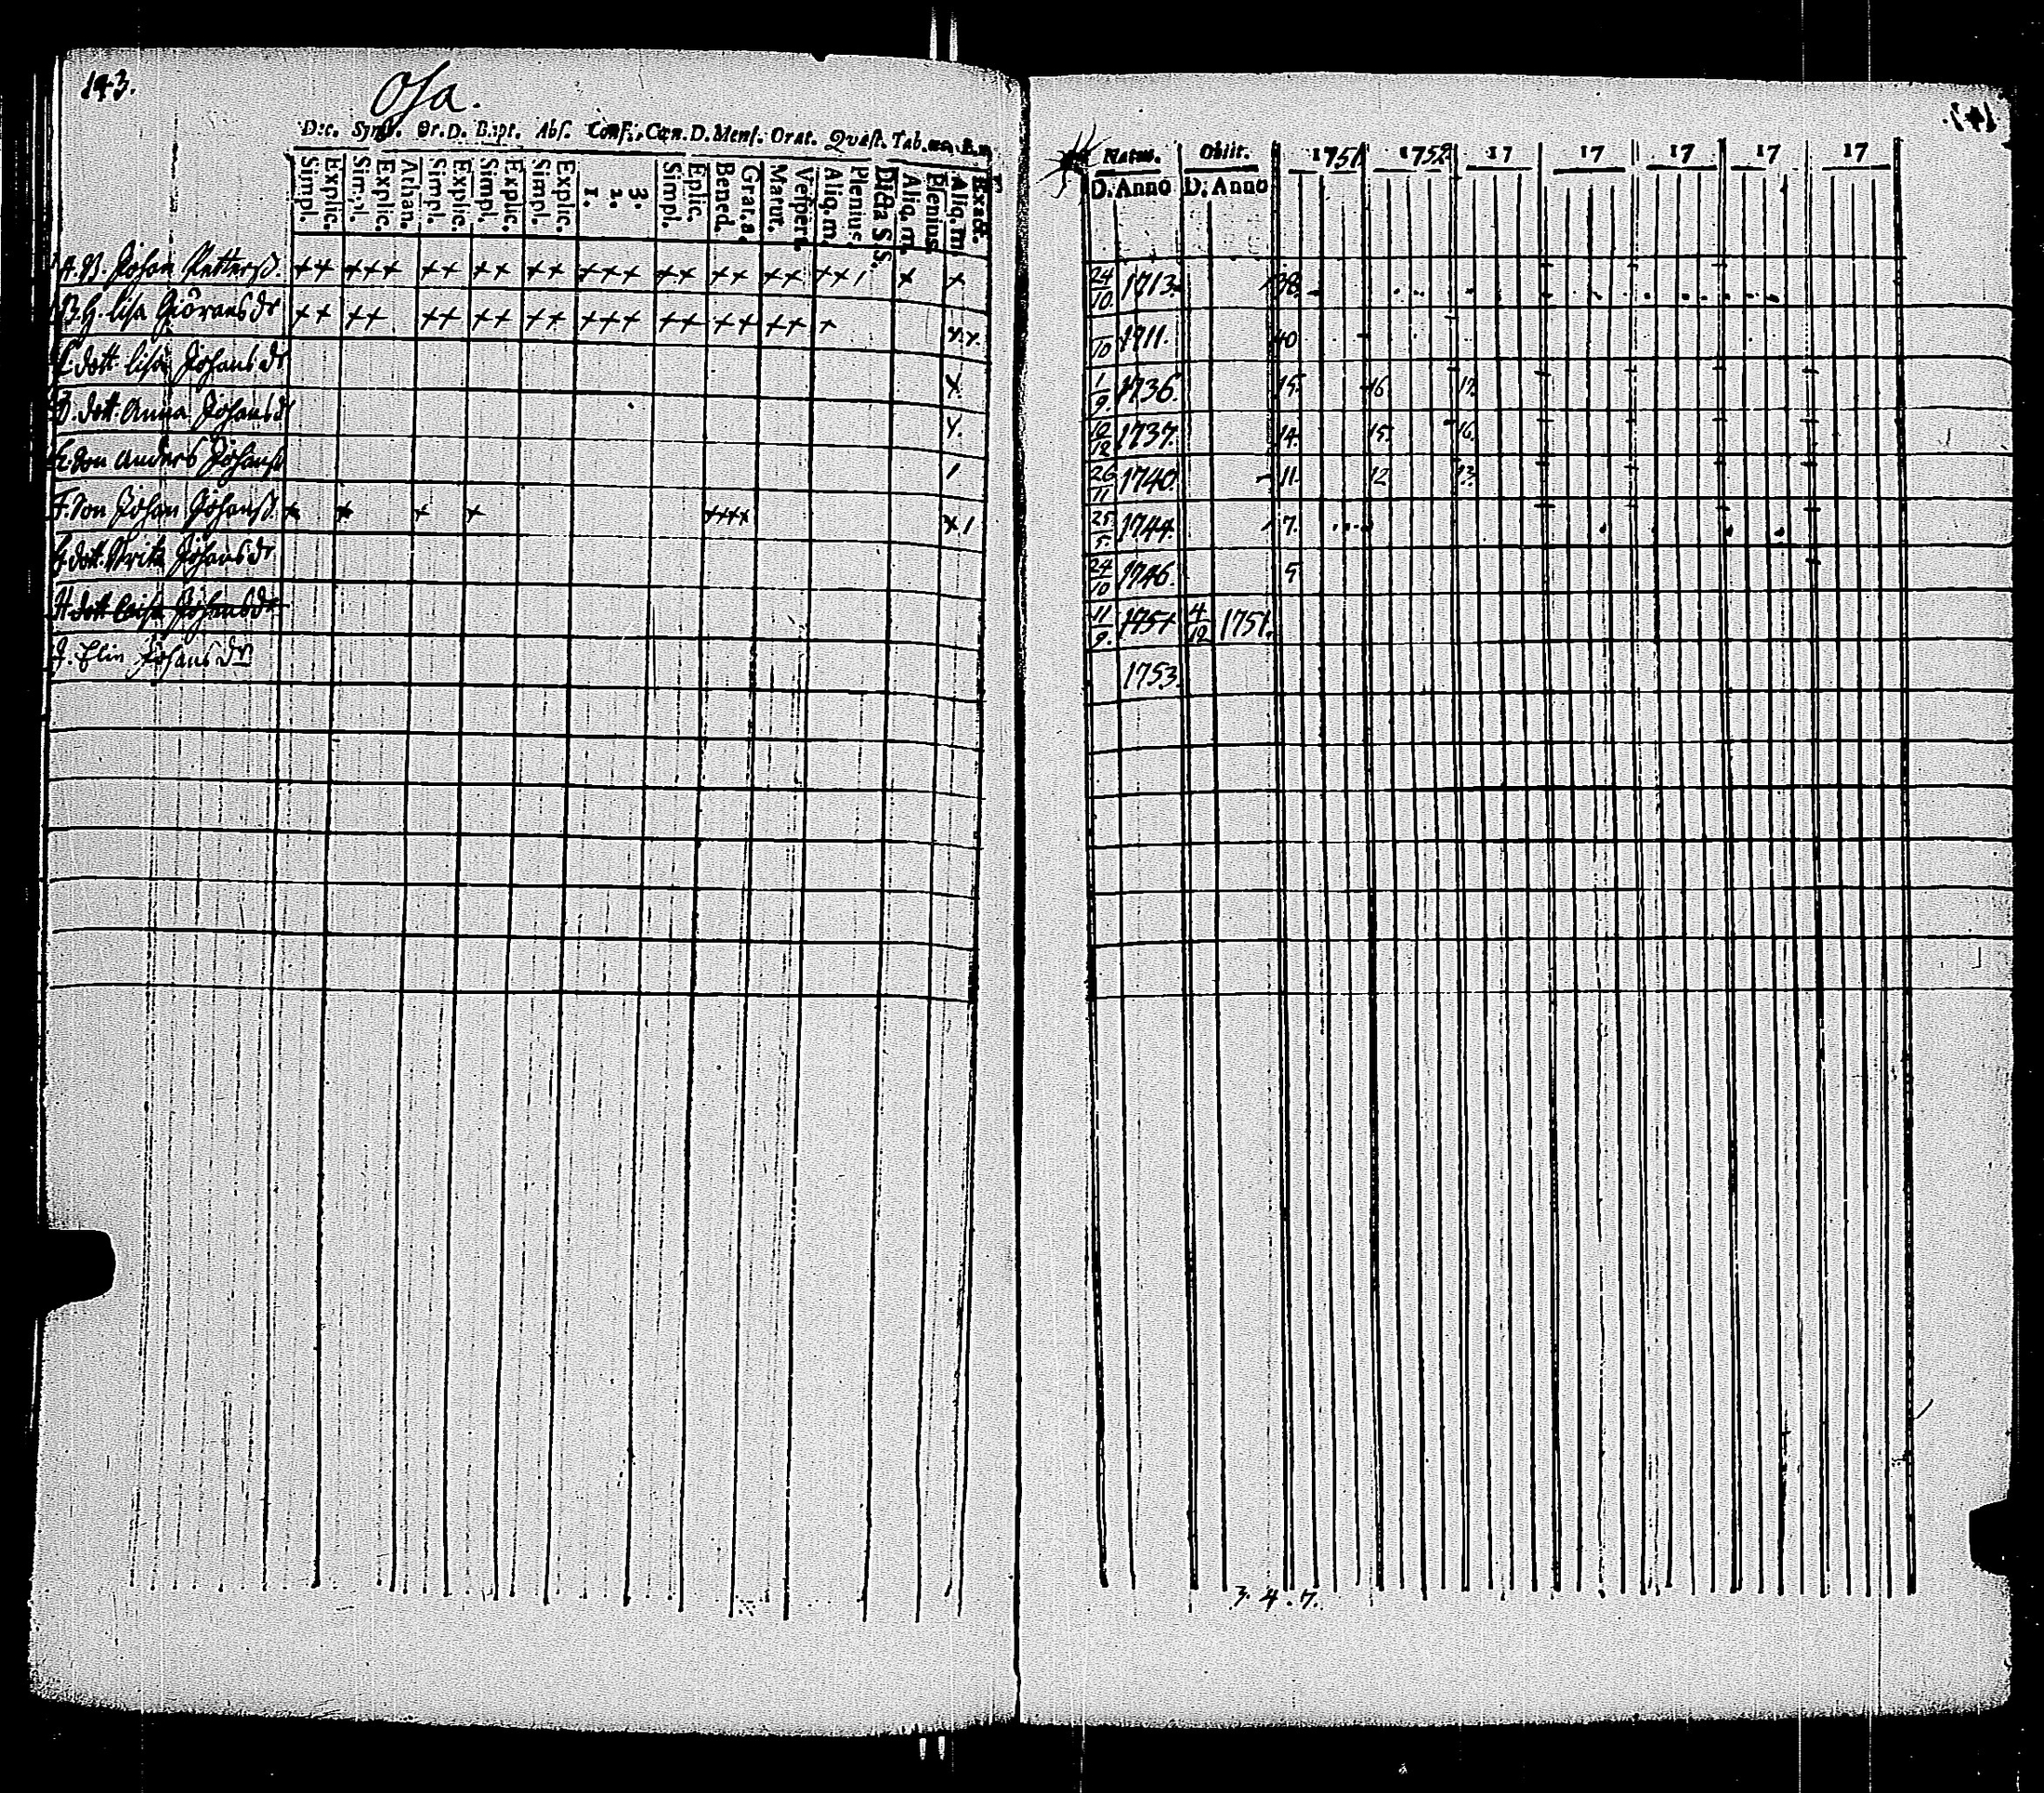 143.
Osa.
Dec. Symb. Or. D. Bapt. Abs. Conf. Cœn. D. Mens. Orat. Quæst. Tab.
Simpl. Explic. Simpl. Explic. Athan. Simpl. Explic. Simpl. Explic. Simpl. Explic. 1. 2. 3. Simpl. Eplic. Bened. Grat. a. Matut. Vespert. Aliq. m. Plenius. Dicta S. S. Aliq. m. Plenius. Aliq. m. Exact.
Natus. Obiit. 1751 1752 17 17 17 17 17
D. Anno D. Anno
A. B. Johan Petterß. ++ +++ ++ ++ ++ +++ ++ ++ ++ ++ / + + 24/10 1713. 38.
B. H. Lisa Giöransdr ++ ++ ++ ++ ++ +++ ++ ++ ++ + /10 1711. 40
C. dott. Lisa Johansdr x. 1/9. 1736. 15. 16. 17.
D. dott. Anna Johansdr 1737. 14. 15. 16.
E. Son Anders Johanß / 26/11 1740. 11. 12. 13.
F. Son Johan Johanß. + + + + ++++ x / 25/5. 1744. 7.
G. dott. Johansdr 24/10 1746. 5
H. dott Johansdr 11/9. 1751 4/12 1751.
J. Elin Johansdr 1753.
3. 4. 7.